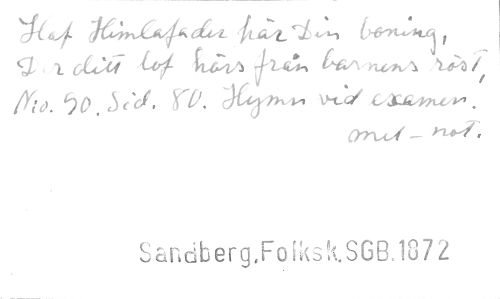 Haf Himlafader här Din boning,
Der ditt lof hörs från barnens röst,
No. 50. Sid. 80. Hymn vid examen.
mel-not.
Sandberg, Folksk. SGB. 1872